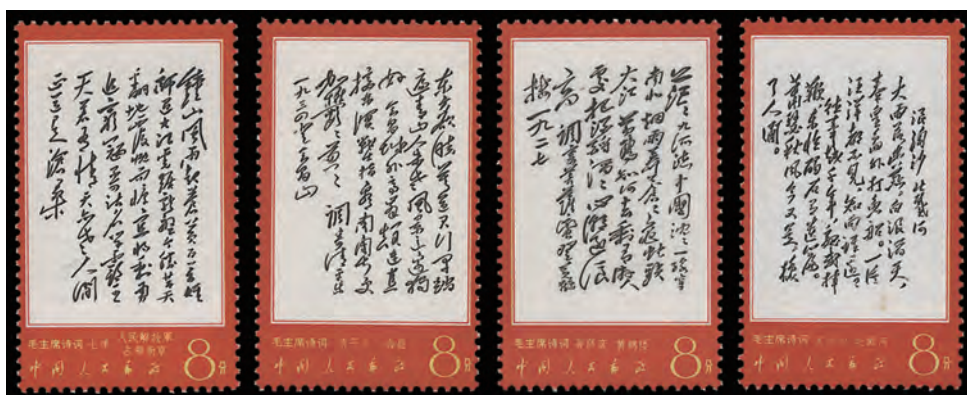 鍾山風雨起蒼黄百万雄
師过大江虎踞龍盤今勝昔天
翻地覆慨而慷宜将剩勇
追窮寇不可沽名学霸王
天若有情天亦老人间
正道是滄桑
毛主席诗词 七律 人民解放军
占领南京
中国人民邮政
8分
东方欲晓莫道君行早踏
遍青山人未老風景这边独
好 会昌城外高峰颠连直
接东溟战士指看南粤更
加郁郁葱葱 调寄清平乐
一九三四 登会昌山
毛主席诗词 清平乐 会昌
中国人民邮政
8分
茫茫九派流中國沉沉一线穿
南北烟雨莽苍苍龟蛇锁
大江 黄鹤知何去剩有游人
处把酒酹滔滔心潮逐浪
高 调寄菩萨蛮登黄鹤
楼 一九二七
毛主席诗词 菩萨蛮 黄鹤楼
中国人民邮政
8分
浪淘沙 北戴河
大雨落幽燕,白浪滔天,
秦皇岛外打鱼船。一片
汪洋都不见,知向谁边?
往事越千年,魏武挥
鞭,东临碣石有遗篇。
萧瑟秋风今又是,换
了人间。
毛主席诗词 浪淘沙 北戴河
中国人民邮政
8分